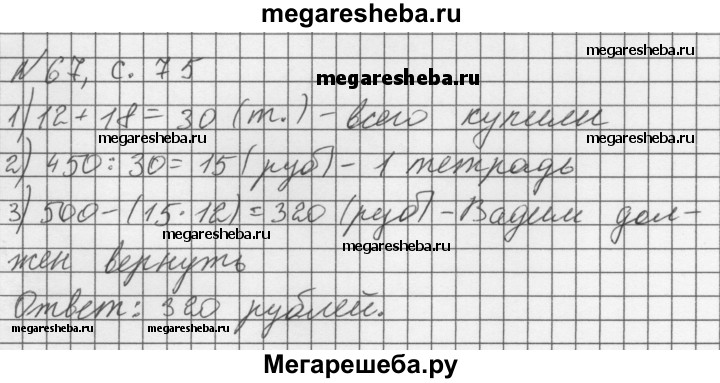 megaresheba.ru
megaresheba.ru
№ 67, с. 75
megaresheba.ru
1) 12 + 18 = 30 (т.) – всего купили
megaresheba.ru
megaresheba.ru
2) 450 : 30 = 15 (руб) – 1 тетрадь
3) 500 – (15 · 12) = 320 (руб) – Вадим дол-
megaresheba.ru
megaresheba.ru
жен вернуть
Ответ: 320 рублей.
megaresheba.ru
megaresheba.ru
Мегарешеба.ру